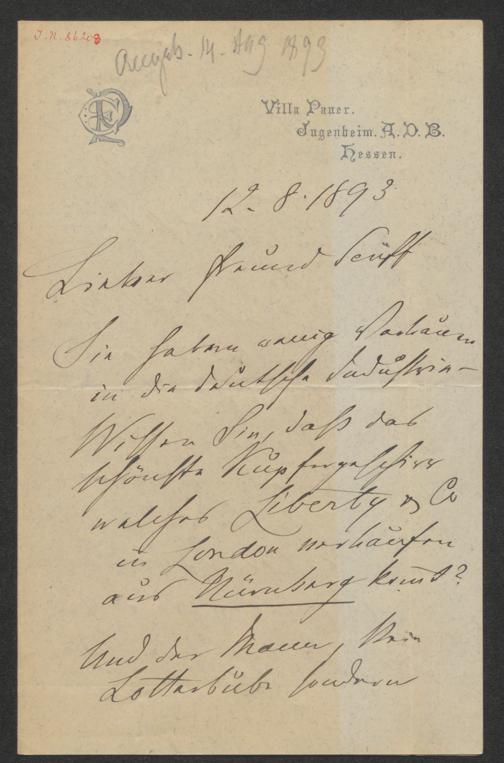 J.N. 86208
14. Aug 1893
Villa Pauer.
Jugenheim. A.D.B.
Hessen.
12. 8. 1893
Lieber Freund
Sie haben wenig Vertrauen
in die deutsche Industrie –
Wissen Sie, daß das
schönste Kupfergeschirr
welches Liberty & Co
in London verkaufen
aus Nürnberg kommt?
Und der Mann, kein
Lotterbube sondern